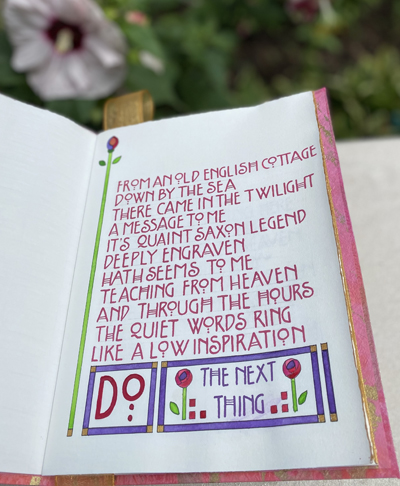 FROM AN OLD ENGLISH COTTAGE
DOWN BY THE SEA
THERE CAME IN THE TWILIGHT
A MESSAGE TO ME
IT'S QUAINT SAXON LEGEND
DEEPLY ENGRAVEN
HATH SEEMS TO ME
TEACHING FROM HEAVEN
AND THROUGH THE HOURS
THE QUIET WORDS RING
LIKE A LOW INSPIRATION
DO THE NEXT
THING